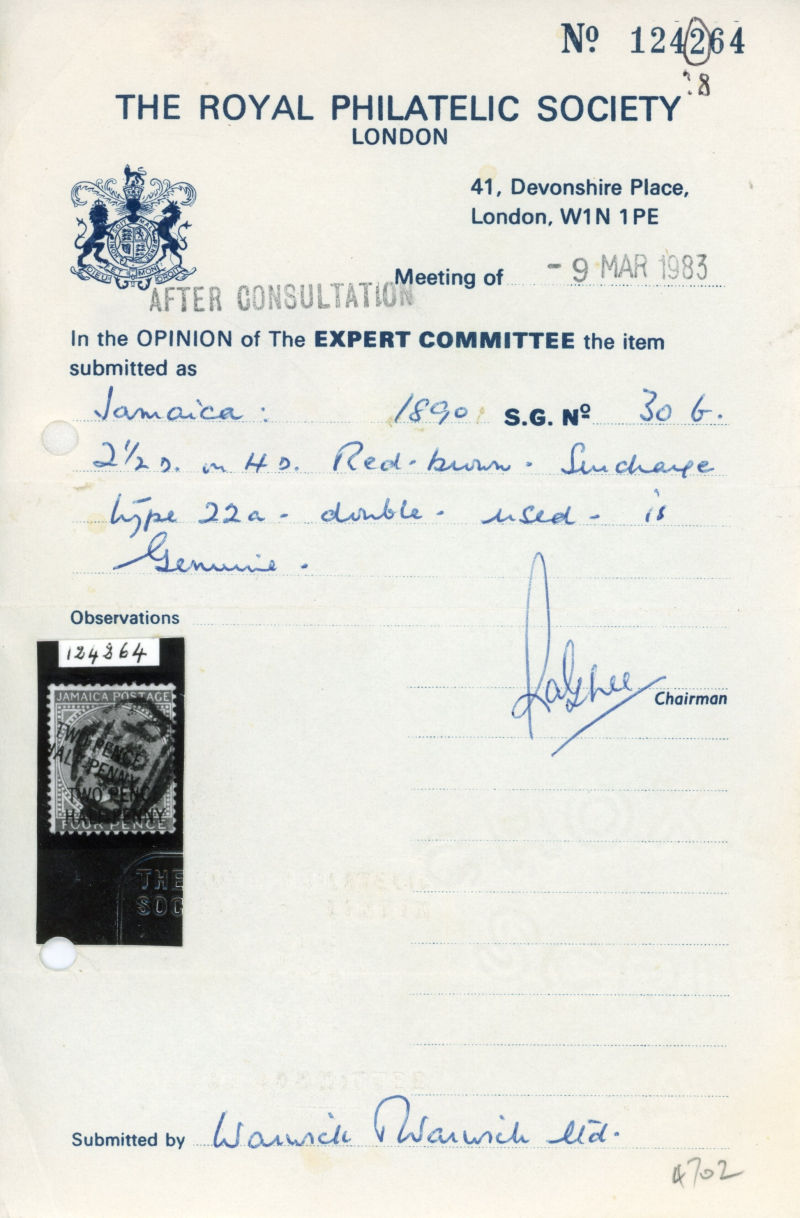 Nº 124264
8
THE ROYAL PHILATELIC SOCIETY
LONDON
41, Devonshire Place,
London, W1N 1PE
Meeting of - 9 MAR 1983
AFTER CONSULTATION
In the OPINION of The EXPERT COMMITTEE the item
submitted as
Jamaica : 1890 S.G. Nº 30 b.
2½d. on 4d. Red-brown - Surcharge
type 22a - double - used - is
Genuine -
Observations
124864
JAMAICA POSTAGE
TWO PENCE
HALF-PENNY
TWO PENC
HALF-PENNY
FOUR PENCE
THE
SOC
Chairman
Submitted by Warwick & Warwick Ltd.
4702